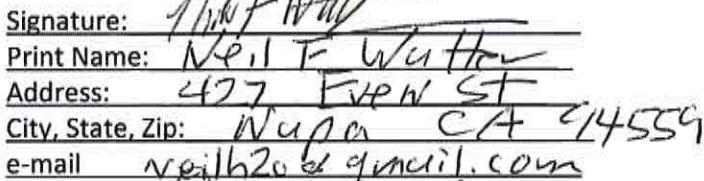 Signature:
Print Name: Neil F
Address: 477 Even St
City, State, Zip: Napa CA 94559
e-mail neilh2o@gmail.com